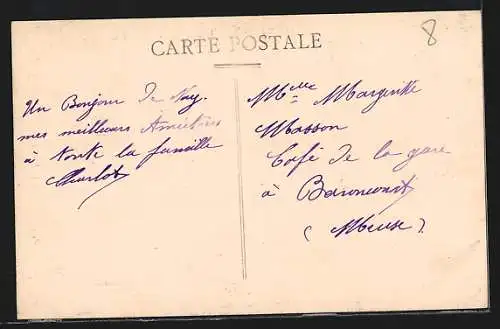 CARTE POSTALE
8
Un Bonjour de Nay.
mes meilleurs Amitiés
à toute la famille
Charlot
Melle Margueritte
Masson
Café de la gare
à Baroncourt
(Meuse)